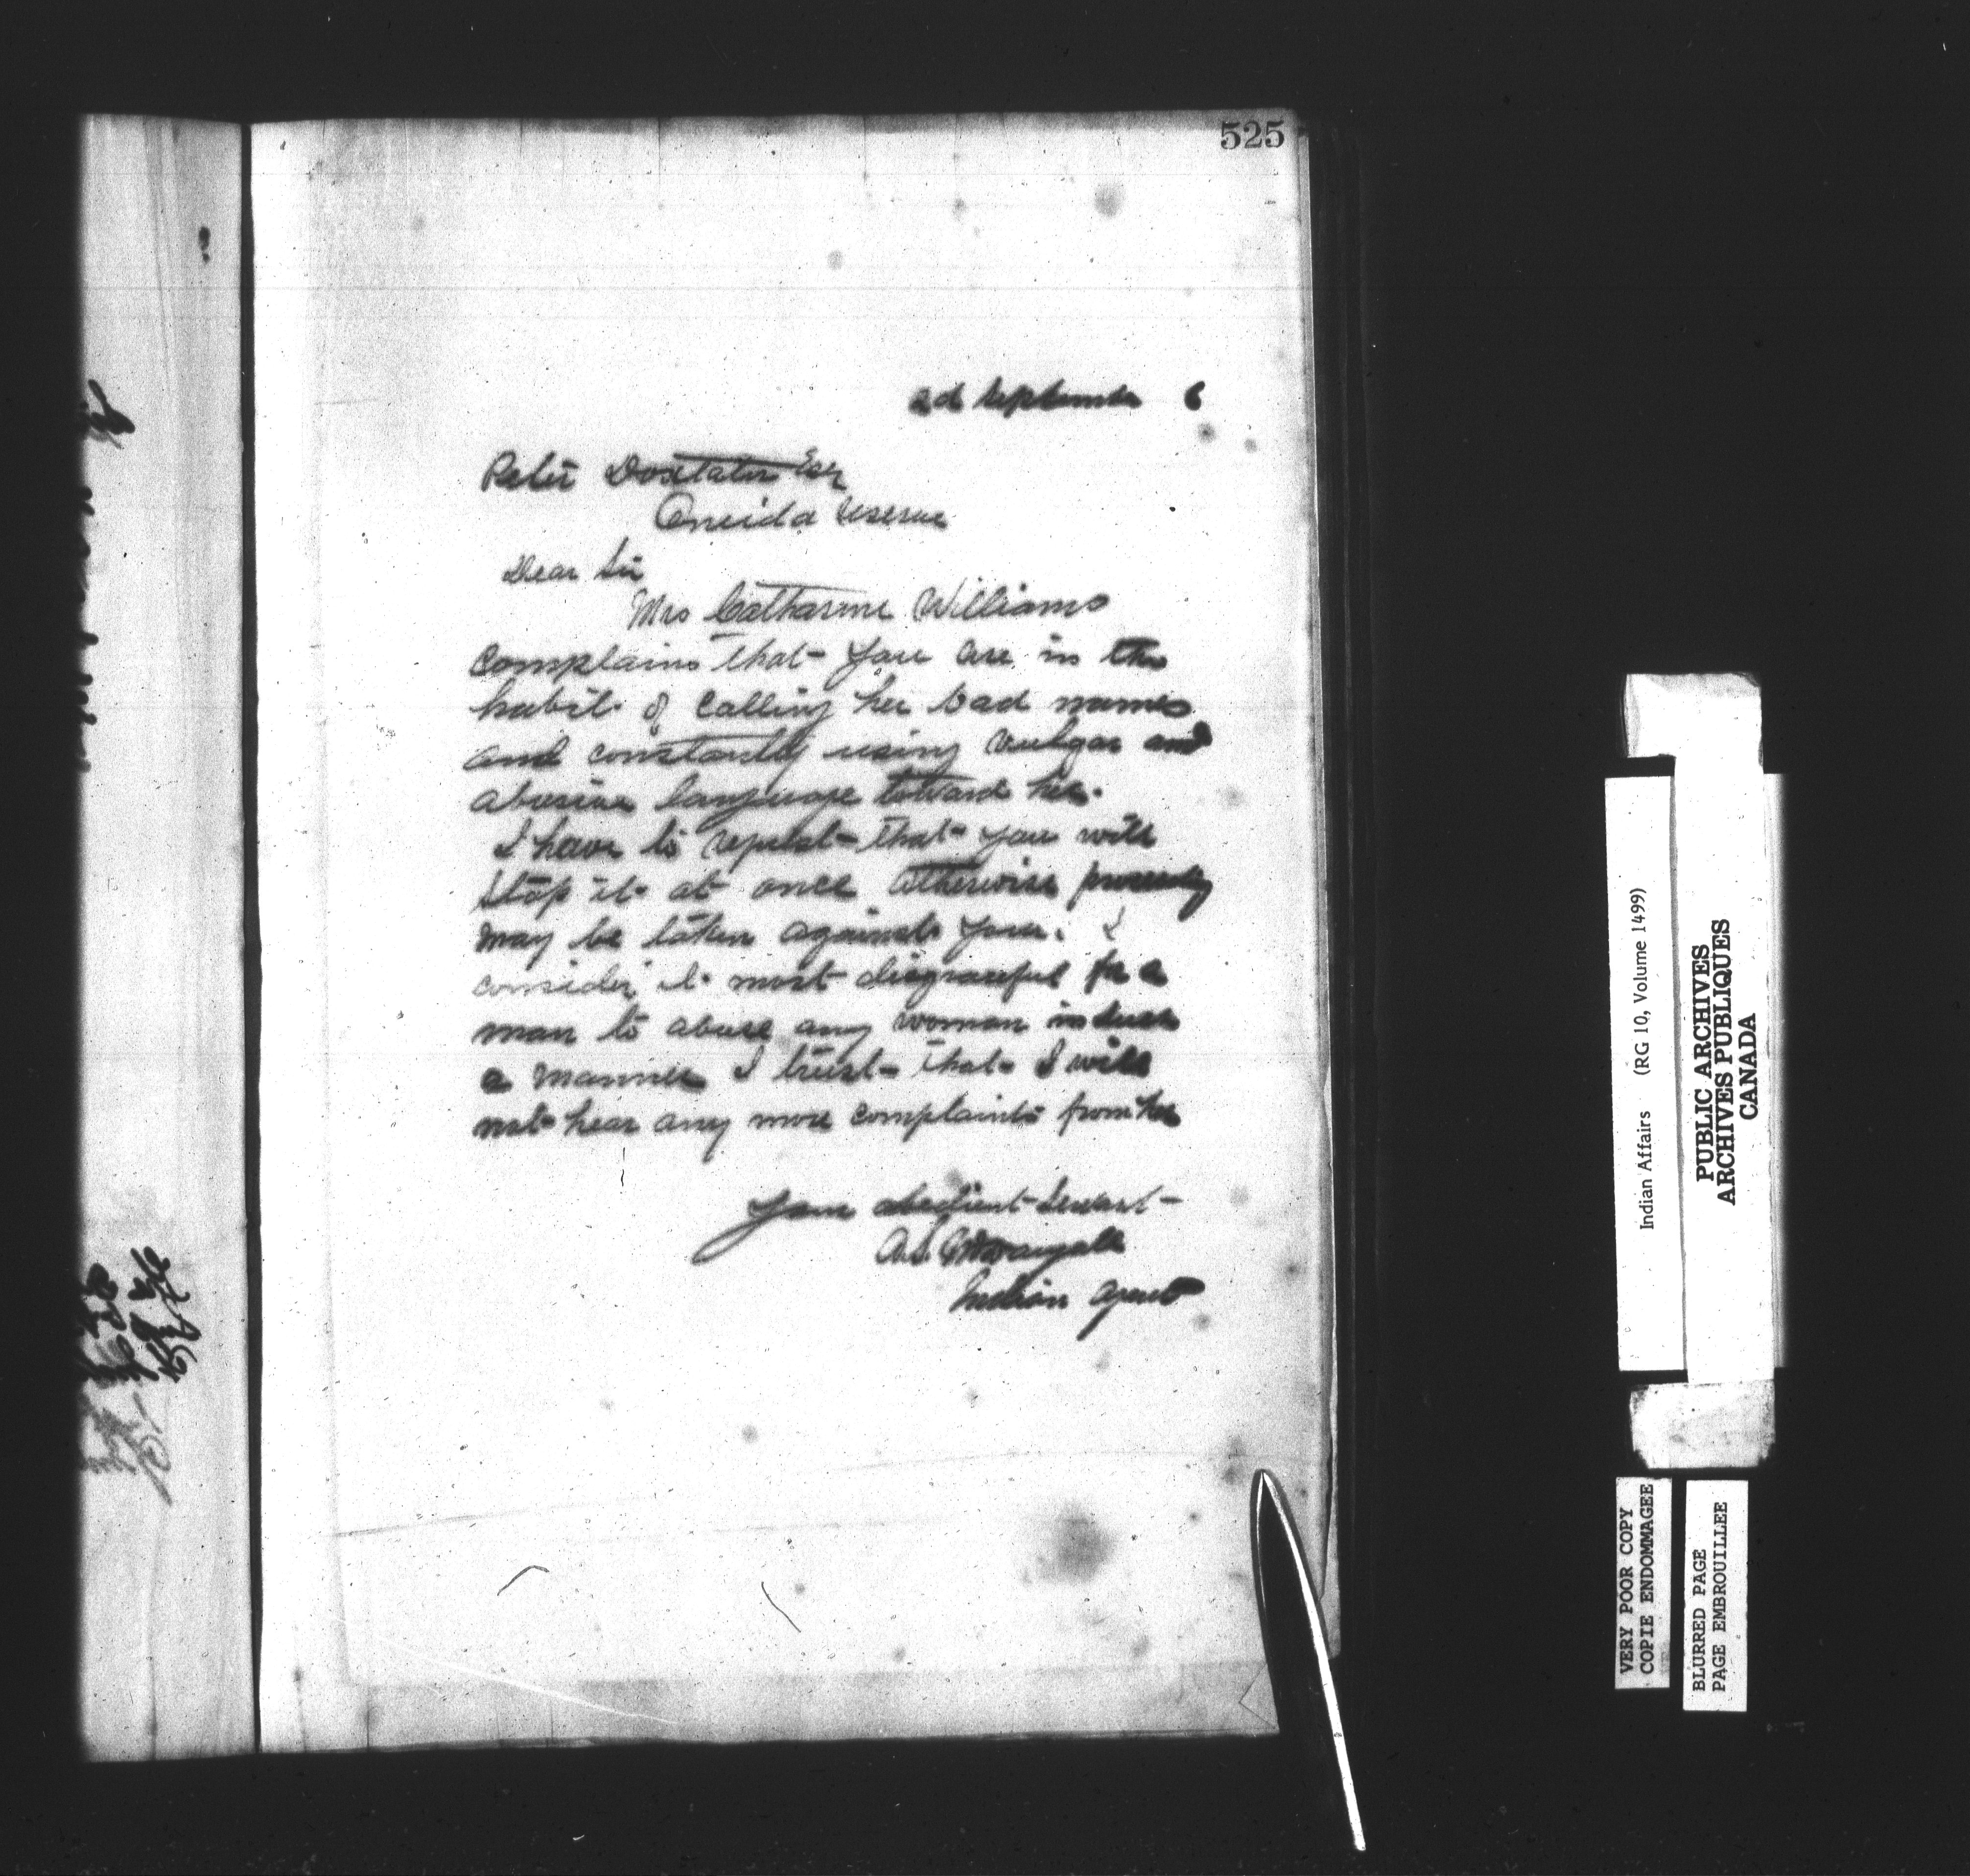 525
2d September 6
Peter Doxtator Esq
Oneida Reserve
Dear Sir
Mrs Catharine Williams
complains that you are in the
habit of calling her bad names
and constantly using vulgar and
abusive language toward her.
I have to request that you will
stop it at once otherwise
may be taken against you. I
consider it most disgraceful for a
man to abuse any woman in such
a manner I trust that I will
not hear any more complaints from her
Your obedient Servant
A.S.
Indian Agent
Indian Affairs (RG 10, Volume 1499)
PUBLIC ARCHIVES
ARCHIVES PUBLIQUES
CANADA
VERY POOR COPY
COPIE ENDOMMAGEE
BLURRED PAGE
PAGE EMBROUILLEE